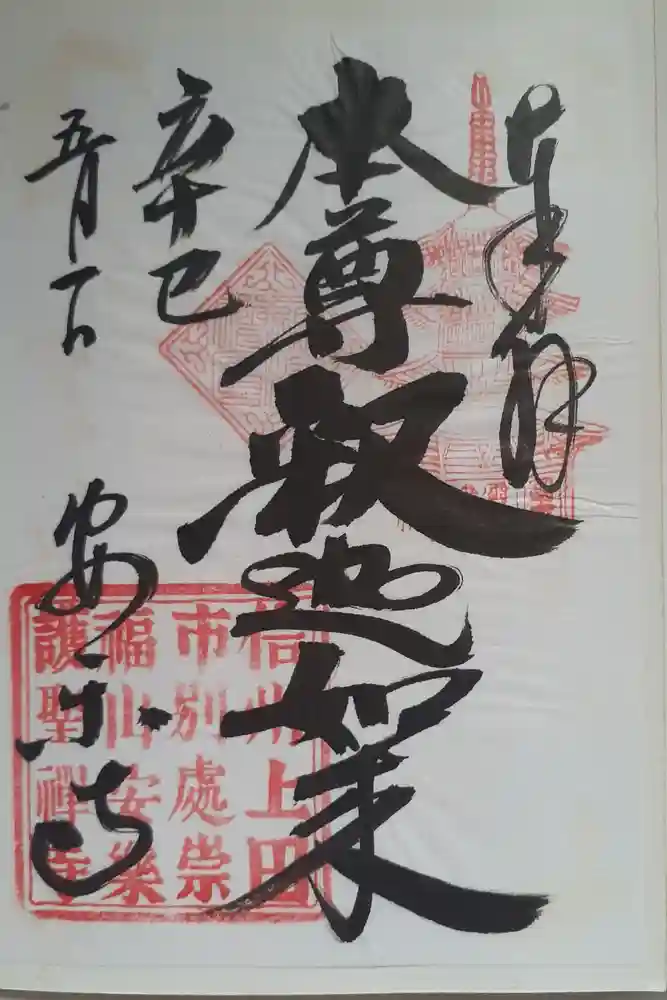 奉拝
本尊釈迦如来
辛巳
五月一日
安楽寺
信州上田
市別處崇
福山安樂
護聖禪寺